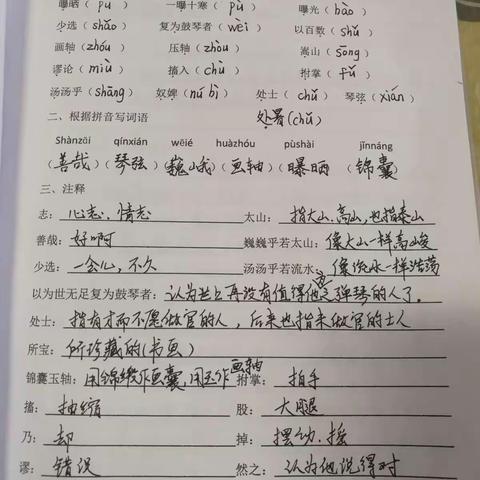 曝晒（pù） 一曝十寒（pù） 曝光（bào）
少选（shǎo） 复为鼓琴者（wèi） 以百数（shǔ）
画轴（zhóu） 压轴（zhòu） 嵩山（sōng）
谬论（miù） 搐入（chù） 拊掌（fǔ）
汤汤乎（shāng） 奴婢（nú bì） 处士（chǔ） 琴弦（xián）
二、根据拼音写词语 处暑(chǔ)
Shànzāi qínxián wēié huàzhóu pùshài jǐnnáng
（善哉）（琴弦）（巍峨）（画轴）（曝晒）（锦囊）
三、注释
志：心志、情志 太山：指大山、高山,也指泰山
善哉：好啊 巍巍乎若太山：像大山一样高峻
少选：一会儿,不久 汤汤乎若流水：像流水一样浩荡
以为世无足复为鼓琴者：认为世上再没有值得他为之弹琴的人了.
处士：指有才而不愿做官的人，后来也指未做官的士人
所宝：所珍藏的(书画)
锦囊玉轴：用锦缎作画囊,用玉作画轴 拊掌：拍手
搐：抽缩 股：大腿
乃：却 掉：摆动、摇
谬：错误 然之：认为他说得对